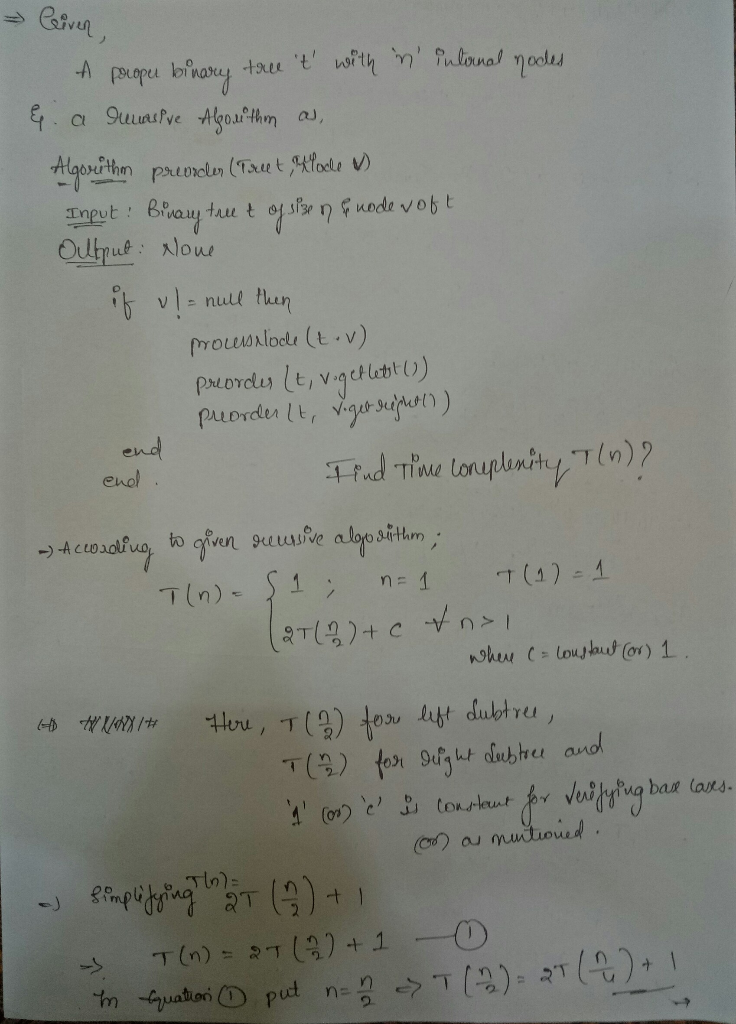 ⇒ Given,
A proper binary tree 't' with 'n' internal nodes
& a recursive Algorithm as,
Algorithm preorder (Tree t, Node v)
Input : Binary tree t of size n & node v of t
Output : None
if v != null then
processNode (t.v)
preorder (t, v.getleft())
preorder (t, v.getright())
end
end.
Find Time complexity T(n)?
→ According to given recursive algorithm ;
T(n) = { 1 ; n = 1 T(1) = 1
2T(n/2) + c ∀ n > 1
where c = constant (or) 1.
Here, T(n/2) for left subtree,
T(n/2) for right subtree and
'1' (or) 'c' is constant for verifying base cases.
(or) as mentioned.
⇒ Simplifying T(n) = 2T(n/2) + 1
⇒ T(n) = 2T(n/2) + 1 — ①
In Equation ① put n = n/2 ⇒ T(n/2) = 2T(n/4) + 1
→